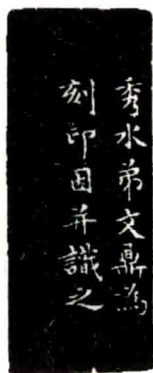 秀水弟文鼎為
刻印因并識之